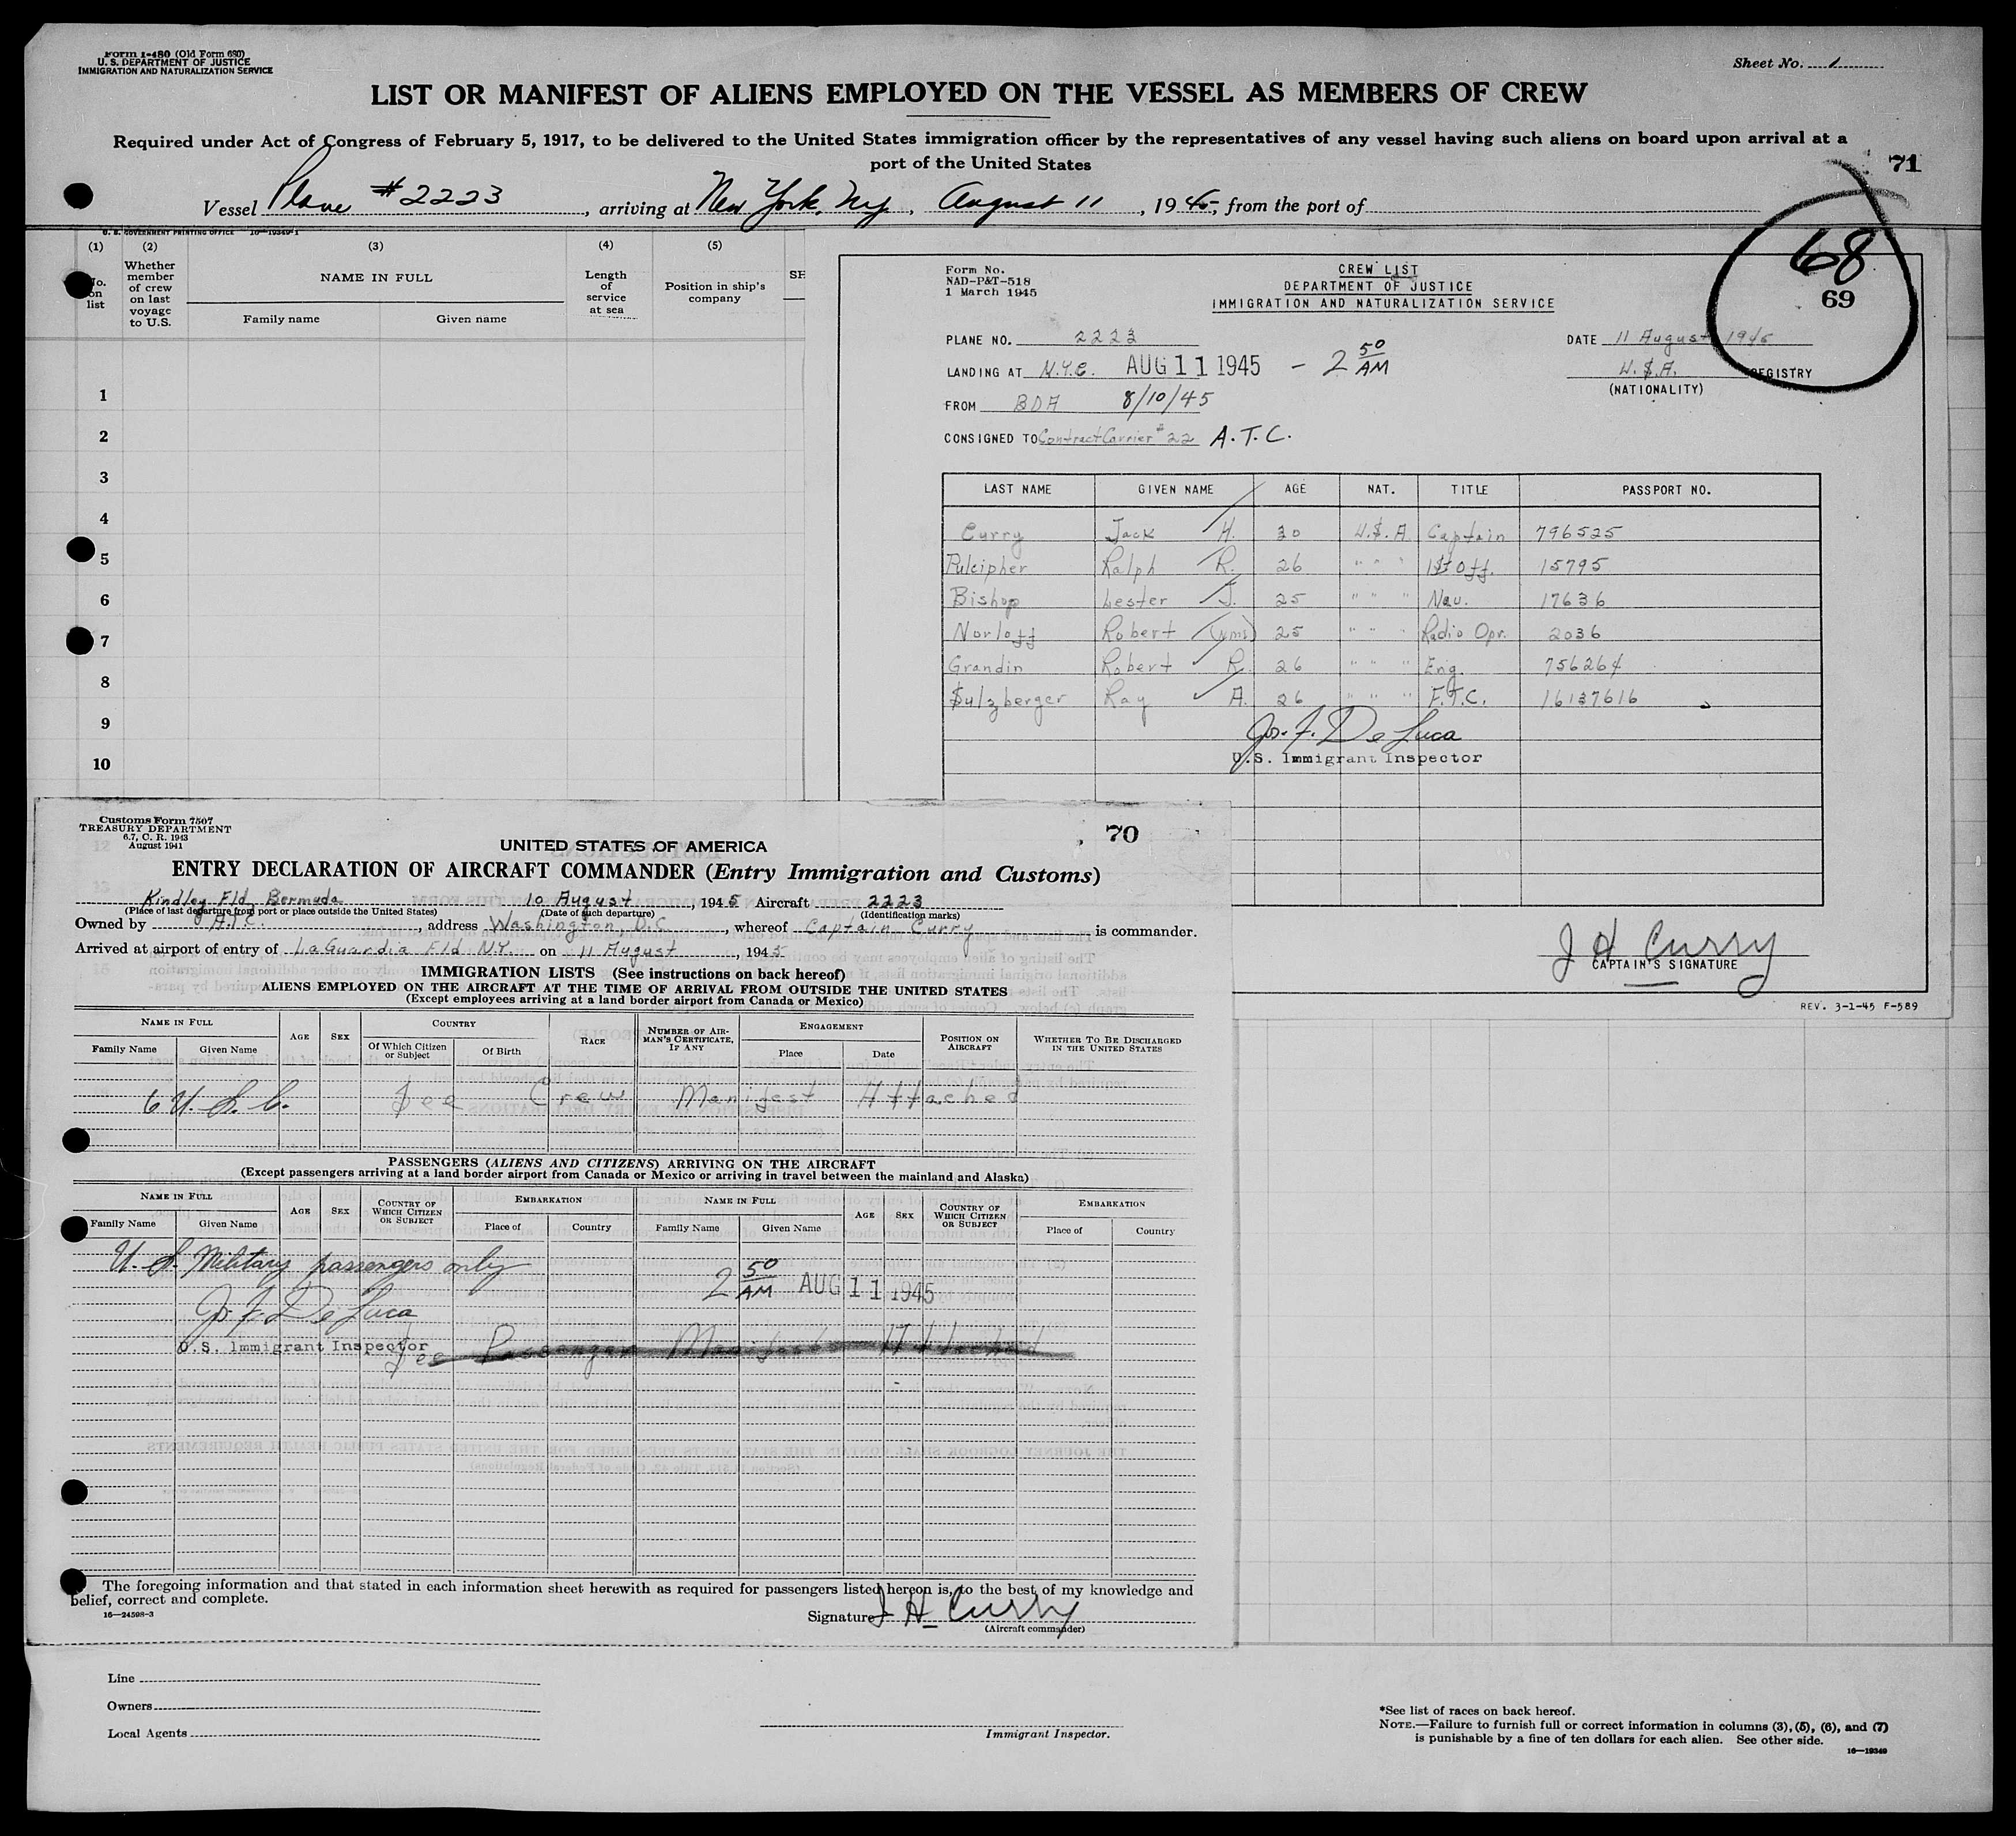 Form I-480 (Old Form 680)
U. S. DEPARTMENT OF JUSTICE
IMMIGRATION AND NATURALIZATION SERVICE
Sheet No. 1
LIST OR MANIFEST OF ALIENS EMPLOYED ON THE VESSEL AS MEMBERS OF CREW
Required under Act of Congress of February 5, 1917, to be delivered to the United States immigration officer by the representatives of any vessel having such aliens on board upon arrival at a
port of the United States
71
Vessel Plane #2223, arriving at New York, NY, August 11, 1945, from the port of
U. S. GOVERNMENT PRINTING OFFICE 16-19349-1
(1) (2) (3) (4) (5)
No. on list
Whether member of crew on last voyage to U.S.
NAME IN FULL
Family name Given name
Length of service at sea
Position in ship's company
SH
1
2
3
4
5
6
7
8
9
10
68
69
Form No.
NAD-P&T-518
1 March 1945
CREW LIST
DEPARTMENT OF JUSTICE
IMMIGRATION AND NATURALIZATION SERVICE
PLANE NO. 2223
DATE 11 August 1945
LANDING AT N.Y.E. AUG 11 1945 - 2 50 AM
U.S.A. REGISTRY
(NATIONALITY)
FROM BDA 8/10/45
CONSIGNED TO Contract Carrier #22 A.T.C.
LAST NAME GIVEN NAME AGE NAT. TITLE PASSPORT NO.
Curry Jack H. 30 U.S.A. Captain 796525
Pulcipher Ralph R. 26 " " " 1st Off. 15795
Bishop Lester J. 25 " " " Nav. 17636
Norloff Robert (nmi) 25 " " " Radio Opr. 2036
Grandin Robert R. 26 " " " Eng. 756264
Sulzberger Ray A. 26 " " " F.T.C. 16137616
Jos. F. De Luca
U.S. Immigrant Inspector
J H Curry
CAPTAIN'S SIGNATURE
REV. 3-1-45 F-589
Customs Form 7507
TREASURY DEPARTMENT
6.7, C. R. 1943
August 1941
70
UNITED STATES OF AMERICA
ENTRY DECLARATION OF AIRCRAFT COMMANDER (Entry Immigration and Customs)
Kindley Fld. Bermuda 10 August, 1945 Aircraft 2223
(Place of last departure from port or place outside the United States) (Date of such departure) (Identification marks)
Owned by A.T.C., address Washington, D.C., whereof Captain Curry is commander.
Arrived at airport of entry of LaGuardia Fld N.Y. on 11 August, 1945
IMMIGRATION LISTS (See instructions on back hereof)
ALIENS EMPLOYED ON THE AIRCRAFT AT THE TIME OF ARRIVAL FROM OUTSIDE THE UNITED STATES
(Except employees arriving at a land border airport from Canada or Mexico)
NAME IN FULL AGE SEX COUNTRY RACE NUMBER OF AIRMAN'S CERTIFICATE, IF ANY ENGAGEMENT POSITION ON AIRCRAFT WHETHER TO BE DISCHARGED IN THE UNITED STATES
Family Name Given Name Of Which Citizen or Subject Of Birth Place Date
6 U.S.C. See Crew Manifest Attached
PASSENGERS (ALIENS AND CITIZENS) ARRIVING ON THE AIRCRAFT
(Except passengers arriving at a land border airport from Canada or Mexico or arriving in travel between the mainland and Alaska)
NAME IN FULL AGE SEX COUNTRY OF WHICH CITIZEN OR SUBJECT EMBARKATION NAME IN FULL AGE SEX COUNTRY OF WHICH CITIZEN OR SUBJECT EMBARKATION
Family Name Given Name Place of Country Family Name Given Name Place of Country
U.S. Military passengers only
2 50 AM AUG 11 1945
Jos. F. De Luca
U.S. Immigrant Inspector
See Passenger Manifest Attached
The foregoing information and that stated in each information sheet herewith as required for passengers listed hereon is, to the best of my knowledge and
belief, correct and complete.
16-24598-3
Signature J H Curry
(Aircraft commander)
Line
Owners
Local Agents
Immigrant Inspector.
*See list of races on back hereof.
NOTE.—Failure to furnish full or correct information in columns (3), (5), (6), and (7)
is punishable by a fine of ten dollars for each alien. See other side.
16-19349